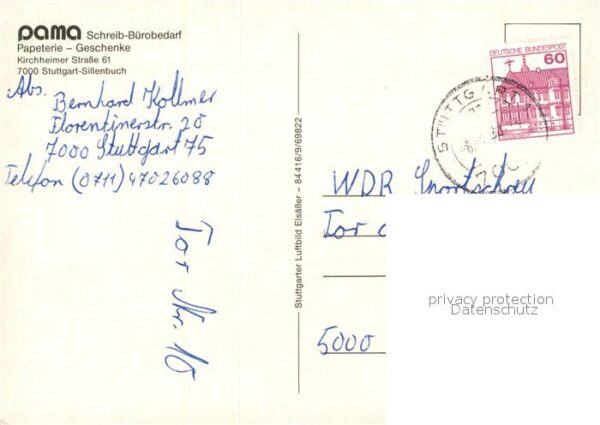 pama Schreib-Bürobedarf
Papeterie – Geschenke
Kirchheimer Straße 61
7000 Stuttgart-Sillenbuch
Abs. Bernhard Kollmer
Florentinerstr. 20
7000 Stuttgart 75
Telefon (0711) 47026088
Tor Nr. 10
Stuttgarter Luftbild Elsäßer – 84416/9/69822
DEUTSCHE BUNDESPOST
60
STUTTGART
WDR Sportschau
Tor
5000
privacy protection
Datenschutz